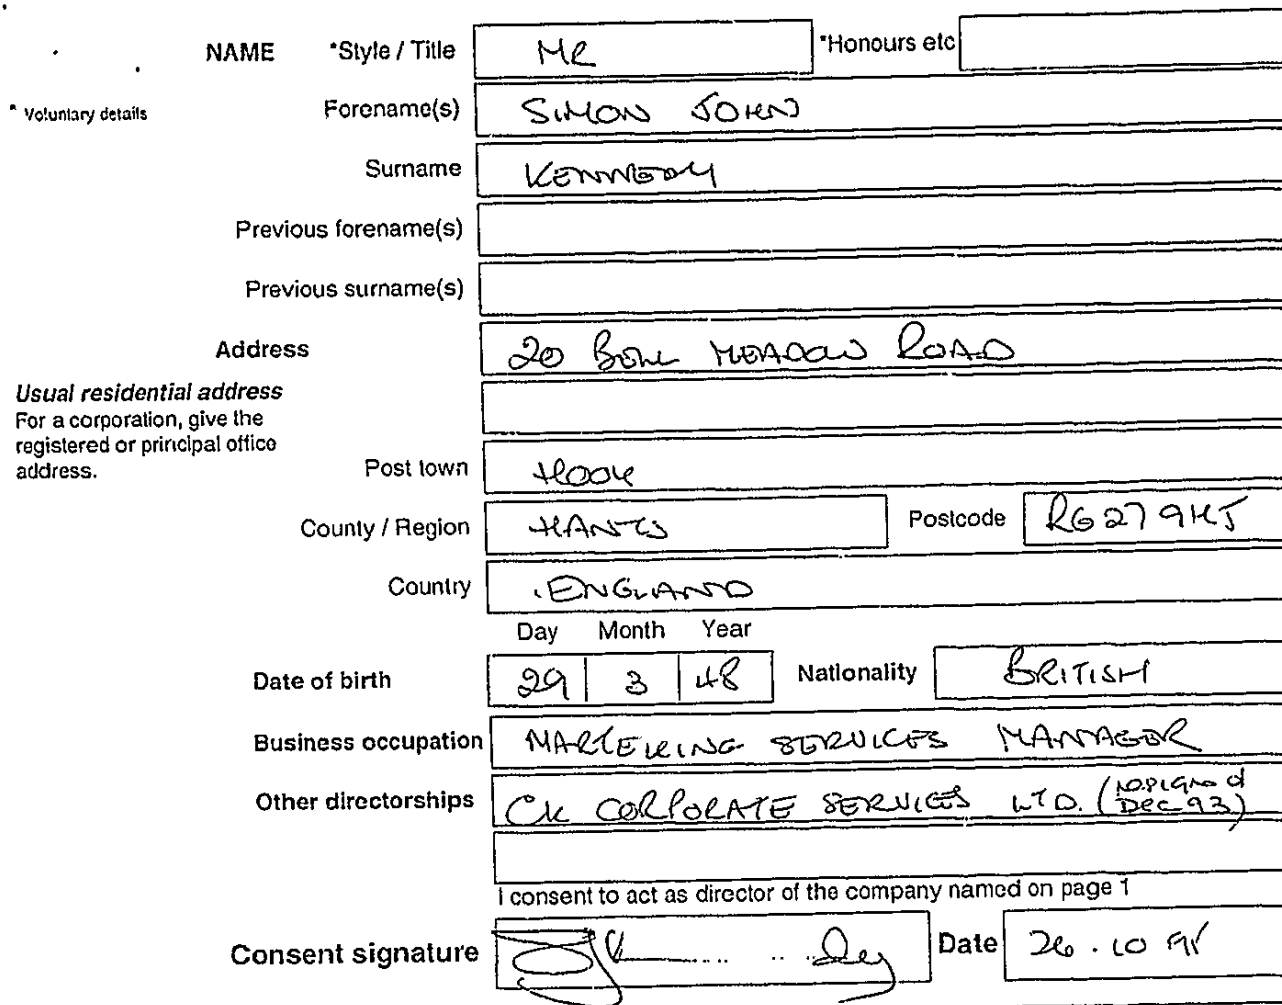 NAME *Style / Title MR *Honours etc
* Voluntary details Forename(s) SIMON JOHN
Surname KENNEDY
Previous forename(s)
Previous surname(s)
Address 20 BELL MEADOW ROAD
Usual residential address
For a corporation, give the
registered or principal office
address.
Post town HOOK
County / Region HANTS Postcode RG27 9HJ
Country ENGLAND
Day Month Year
Date of birth 29 3 48 Nationality BRITISH
Business occupation MARKETING SERVICES MANAGER
Other directorships CK CORPORATE SERVICES LTD. (resigned
Dec 93)
I consent to act as director of the company named on page 1
Consent signature Date 26.10